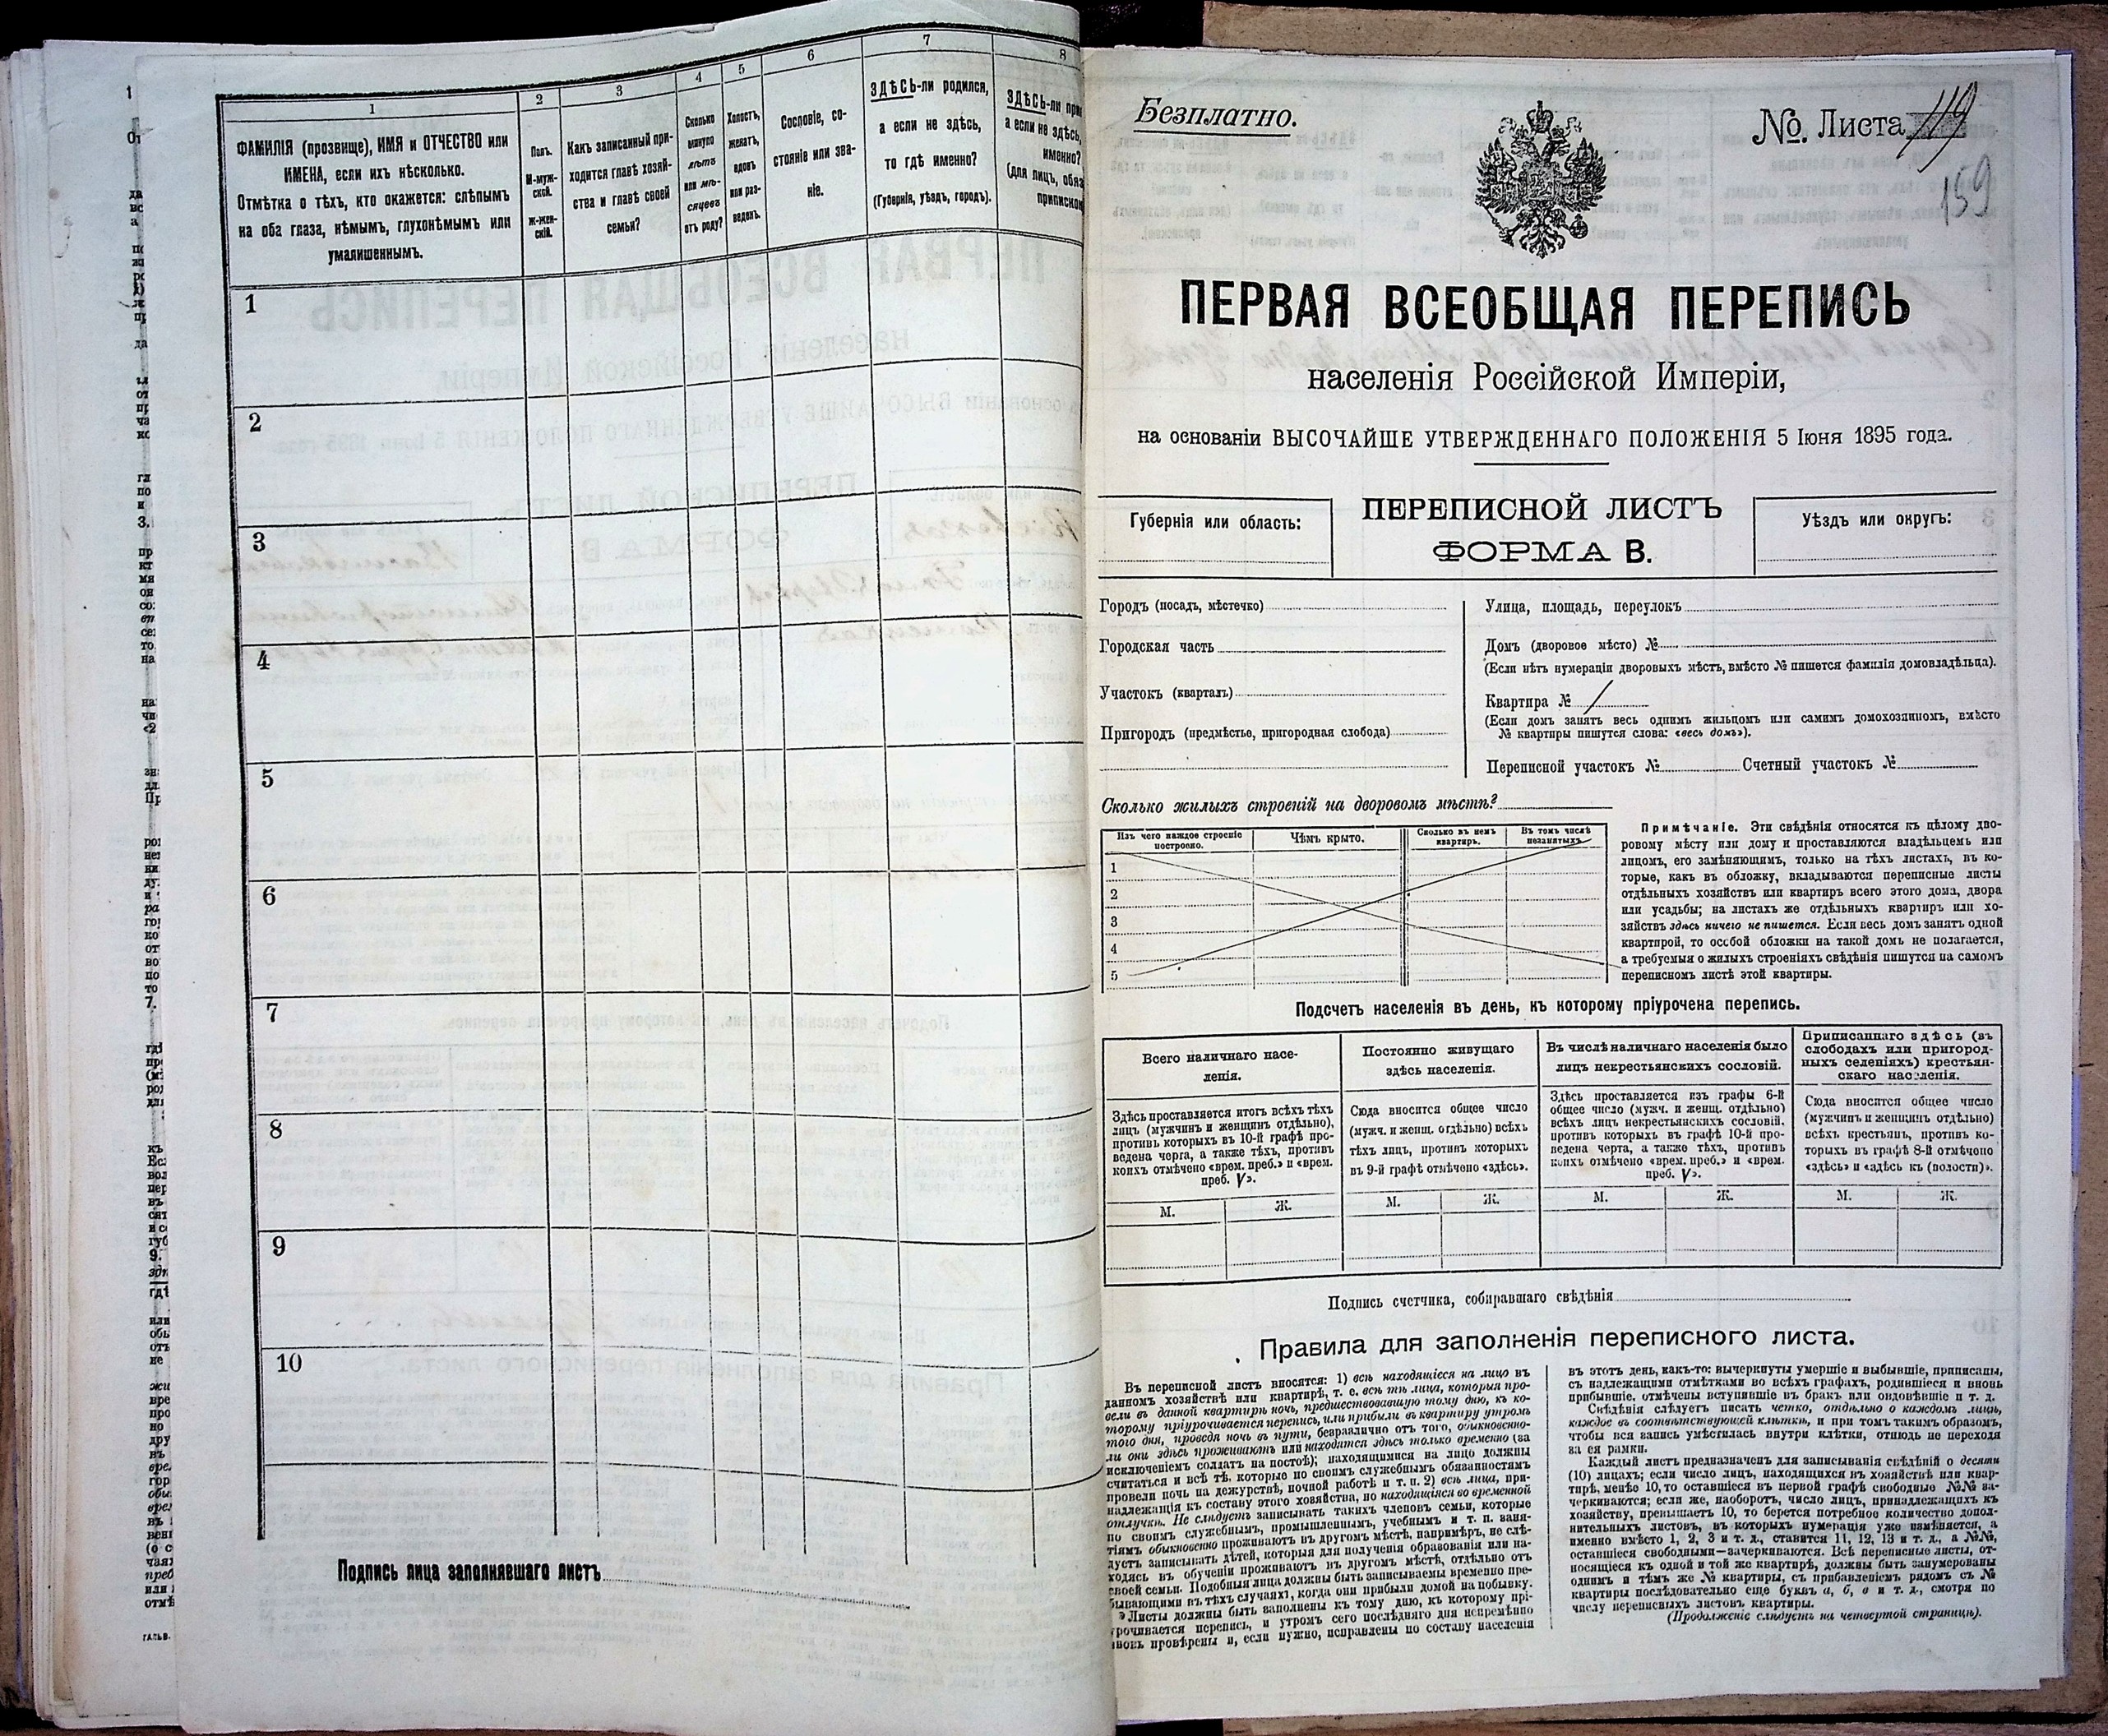 1
2
3
4
5
6
7
8
ФАМИЛІЯ (прозвище), ИМЯ и ОТЧЕСТВО или
ИМЕНА, если ихъ нѣсколько.
Отмѣтка о тѣхъ, кто окажется: слѣпымъ
на оба глаза, нѣмымъ, глухонѣмымъ или
умалишеннымъ.
Полъ.
М-муж-
ской.
ж-жен-
скій.
Какъ записанный при-
ходится главѣ хозяй-
ства и главѣ своей
семьи?
Сколько
минуло
лѣтъ
или мѣ-
сяцевъ
отъ роду?
Холостъ,
женатъ,
вдовъ
или раз-
веденъ.
Сословіе, со-
стояніе или зва-
ніе.
ЗДѢСЬ-ли родился,
а если не здѣсь,
то гдѣ именно?
(Губернія, уѣздъ, городъ).
ЗДѢСЬ-ли
а если не здѣсь,
именно?
(для лицъ,
1
2
3
4
5
6
7
8
9
10
Подпись лица заполнявшаго листъ
Безплатно.
No. Листа 119
159
ПЕРВАЯ ВСЕОБЩАЯ ПЕРЕПИСЬ
населенія Россійской Имперіи,
на основаніи ВЫСОЧАЙШЕ УТВЕРЖДЕННАГО ПОЛОЖЕНІЯ 5 Іюня 1895 года.
Губернія или область:
ПЕРЕПИСНОЙ ЛИСТЪ
ФОРМА В.
Уѣздъ или округъ:
Городъ (посадъ, мѣстечко)
Городская часть
Участокъ (кварталъ)
Пригородъ (предмѣстье, пригородная слобода)
Улица, площадь, переулокъ
Домъ (дворовое мѣсто) №
(Если нѣтъ нумераціи дворовыхъ мѣстъ, вмѣсто № пишется фамилія домовладѣльца).
Квартира №
(Если домъ занятъ весь однимъ жильцомъ или самимъ домохозяиномъ, вмѣсто
№ квартиры пишутся слова: «весь домъ»).
Переписной участокъ № Счетный участокъ №
Сколько жилыхъ строеній на дворовомъ мѣстѣ?
Изъ чего каждое строеніе
построено.
Чѣмъ крыто.
Сколько въ немъ
квартиръ.
Въ томъ числѣ
незанятыхъ.
1
2
3
4
5
Примѣчаніе. Эти свѣдѣнія относятся къ цѣлому дво-
ровому мѣсту или дому и проставляются владѣльцемъ или
лицомъ, его замѣняющимъ, только на тѣхъ листахъ, въ ко-
торые, какъ въ обложку, вкладываются переписные листы
отдѣльныхъ хозяйствъ или квартиръ всего этого дома, двора
или усадьбы; на листахъ же отдѣльныхъ квартиръ или хо-
зяйствъ здѣсь ничего не пишется. Если весь домъ занятъ одной
квартирой, то особой обложки на такой домъ не полагается,
а требуемыя о жилыхъ строеніяхъ свѣдѣнія пишутся на самомъ
переписномъ листѣ этой квартиры.
Подсчетъ населенія въ день, къ которому пріурочена перепись.
Всего наличнаго насе-
ленія.
Здѣсь проставляется итогъ всѣхъ тѣхъ
лицъ (мужчинъ и женщинъ отдѣльно),
противъ которыхъ въ 10-й графѣ про-
ведена черта, а также тѣхъ, противъ
коихъ отмѣчено «врем. преб.» и «врем.
преб. V».
М. Ж.
Постоянно живущаго
здѣсь населенія.
Сюда вносится общее число
(мужч. и женщ. отдѣльно) всѣхъ
тѣхъ лицъ, противъ которыхъ
въ 9-й графѣ отмѣчено «здѣсь».
М. Ж.
Въ числѣ наличнаго населенія было
лицъ некрестьянскихъ сословій.
Здѣсь проставляется изъ графы 6-й
общее число (мужч. и женщ. отдѣльно)
всѣхъ лицъ некрестьянскихъ сословій.
противъ которыхъ въ графѣ 10-й про-
ведена черта, а также тѣхъ, противъ
коихъ отмѣчено «врем. преб.» и «врем.
преб. V».
М. Ж.
Приписаннаго здѣсь (въ
слободахъ или пригород-
ныхъ селеніяхъ) крестьян-
скаго населенія.
Сюда вносится общее число
(мужчинъ и женщинъ отдѣльно)
всѣхъ крестьянъ, противъ ко-
торыхъ въ графѣ 8-й отмѣчено
«здѣсь» и «здѣсь къ (волости)».
М. Ж.
Подпись счетчика, собиравшаго свѣдѣнія
Правила для заполненія переписного листа.
Въ переписной листъ вносятся: 1) всѣ находящіеся на лицо въ
данномъ хозяйствѣ или квартирѣ, т. е. всѣ тѣ лица, которыя про-
вели въ данной квартирѣ ночь, предшествовавшую тому дню, къ ко-
торому пріурочивается перепись, или прибыли въ квартиру утромъ
того дня, проведя ночь въ пути, безразлично отъ того, обыкновенно-
ли они здѣсь проживаютъ или находятся здѣсь только временно (за
исключеніемъ солдатъ на постоѣ); находящимися на лицо должны
считаться и всѣ тѣ, которые по своимъ служебнымъ обязанностямъ
провели ночь на дежурствѣ, ночной работѣ и т. п. 2) всѣ лица, при-
надлежащія къ составу этого хозяйства, но находящіяся во временной
отлучкѣ. Не слѣдуетъ записывать такихъ членовъ семьи, которые
по своимъ служебнымъ, промышленнымъ, учебнымъ и т. п. заня-
тіямъ обыкновенно проживаютъ въ другомъ мѣстѣ, напримѣръ, не слѣ-
дуетъ записывать дѣтей, которыя для полученія образованія или на-
ходясь въ обученіи проживаютъ въ другомъ мѣстѣ, отдѣльно отъ
своей семьи. Подобныя лица должны быть записываемы временно пре-
бывающими въ тѣхъ случаяхъ, когда они прибыли домой на побывку.
Листы должны быть заполнены къ тому дню, къ которому прі-
урочивается перепись, и утромъ сего послѣдняго дня непремѣнно
вновь провѣрены и, если нужно, исправлены по составу населенія
въ этотъ день, какъ-то: вычеркнуты умершіе и выбывшіе, приписаны,
съ надлежащими отмѣтками во всѣхъ графахъ, родившіеся и вновь
прибывшіе, отмѣчены вступившіе въ бракъ или овдовѣвшіе и т. д.
Свѣдѣнія слѣдуетъ писать четко, отдѣльно о каждомъ лицѣ,
каждое въ соотвѣтствующей клѣткѣ, и при томъ такимъ образомъ,
чтобы вся запись умѣстилась внутри клѣтки, отнюдь не переходя
за ея рамки.
Каждый листъ предназначенъ для записыванія свѣдѣній о десяти
(10) лицахъ; если число лицъ, находящихся въ хозяйствѣ или квар-
тирѣ, менѣе 10, то оставшіеся въ первой графѣ свободные №№ за-
черкиваются; если же, наоборотъ, число лицъ, принадлежащихъ къ
хозяйству, превышаетъ 10, то берется потребное количество допол-
нительныхъ листовъ, въ которыхъ нумерація уже измѣняется, а
именно вмѣсто 1, 2, 3 и т. д., ставится 11, 12, 13 и т. д., а №№,
оставшіеся свободными—зачеркиваются. Всѣ переписные листы, от-
носящіеся къ одной и той же квартирѣ, должны быть занумерованы
однимъ и тѣмъ же № квартиры, съ прибавленіемъ рядомъ съ №
квартиры послѣдовательно еще буквъ а, б, в и т. д., смотря по
числу переписныхъ листовъ квартиры.
(Продолженіе слѣдуетъ на четвертой страницѣ).